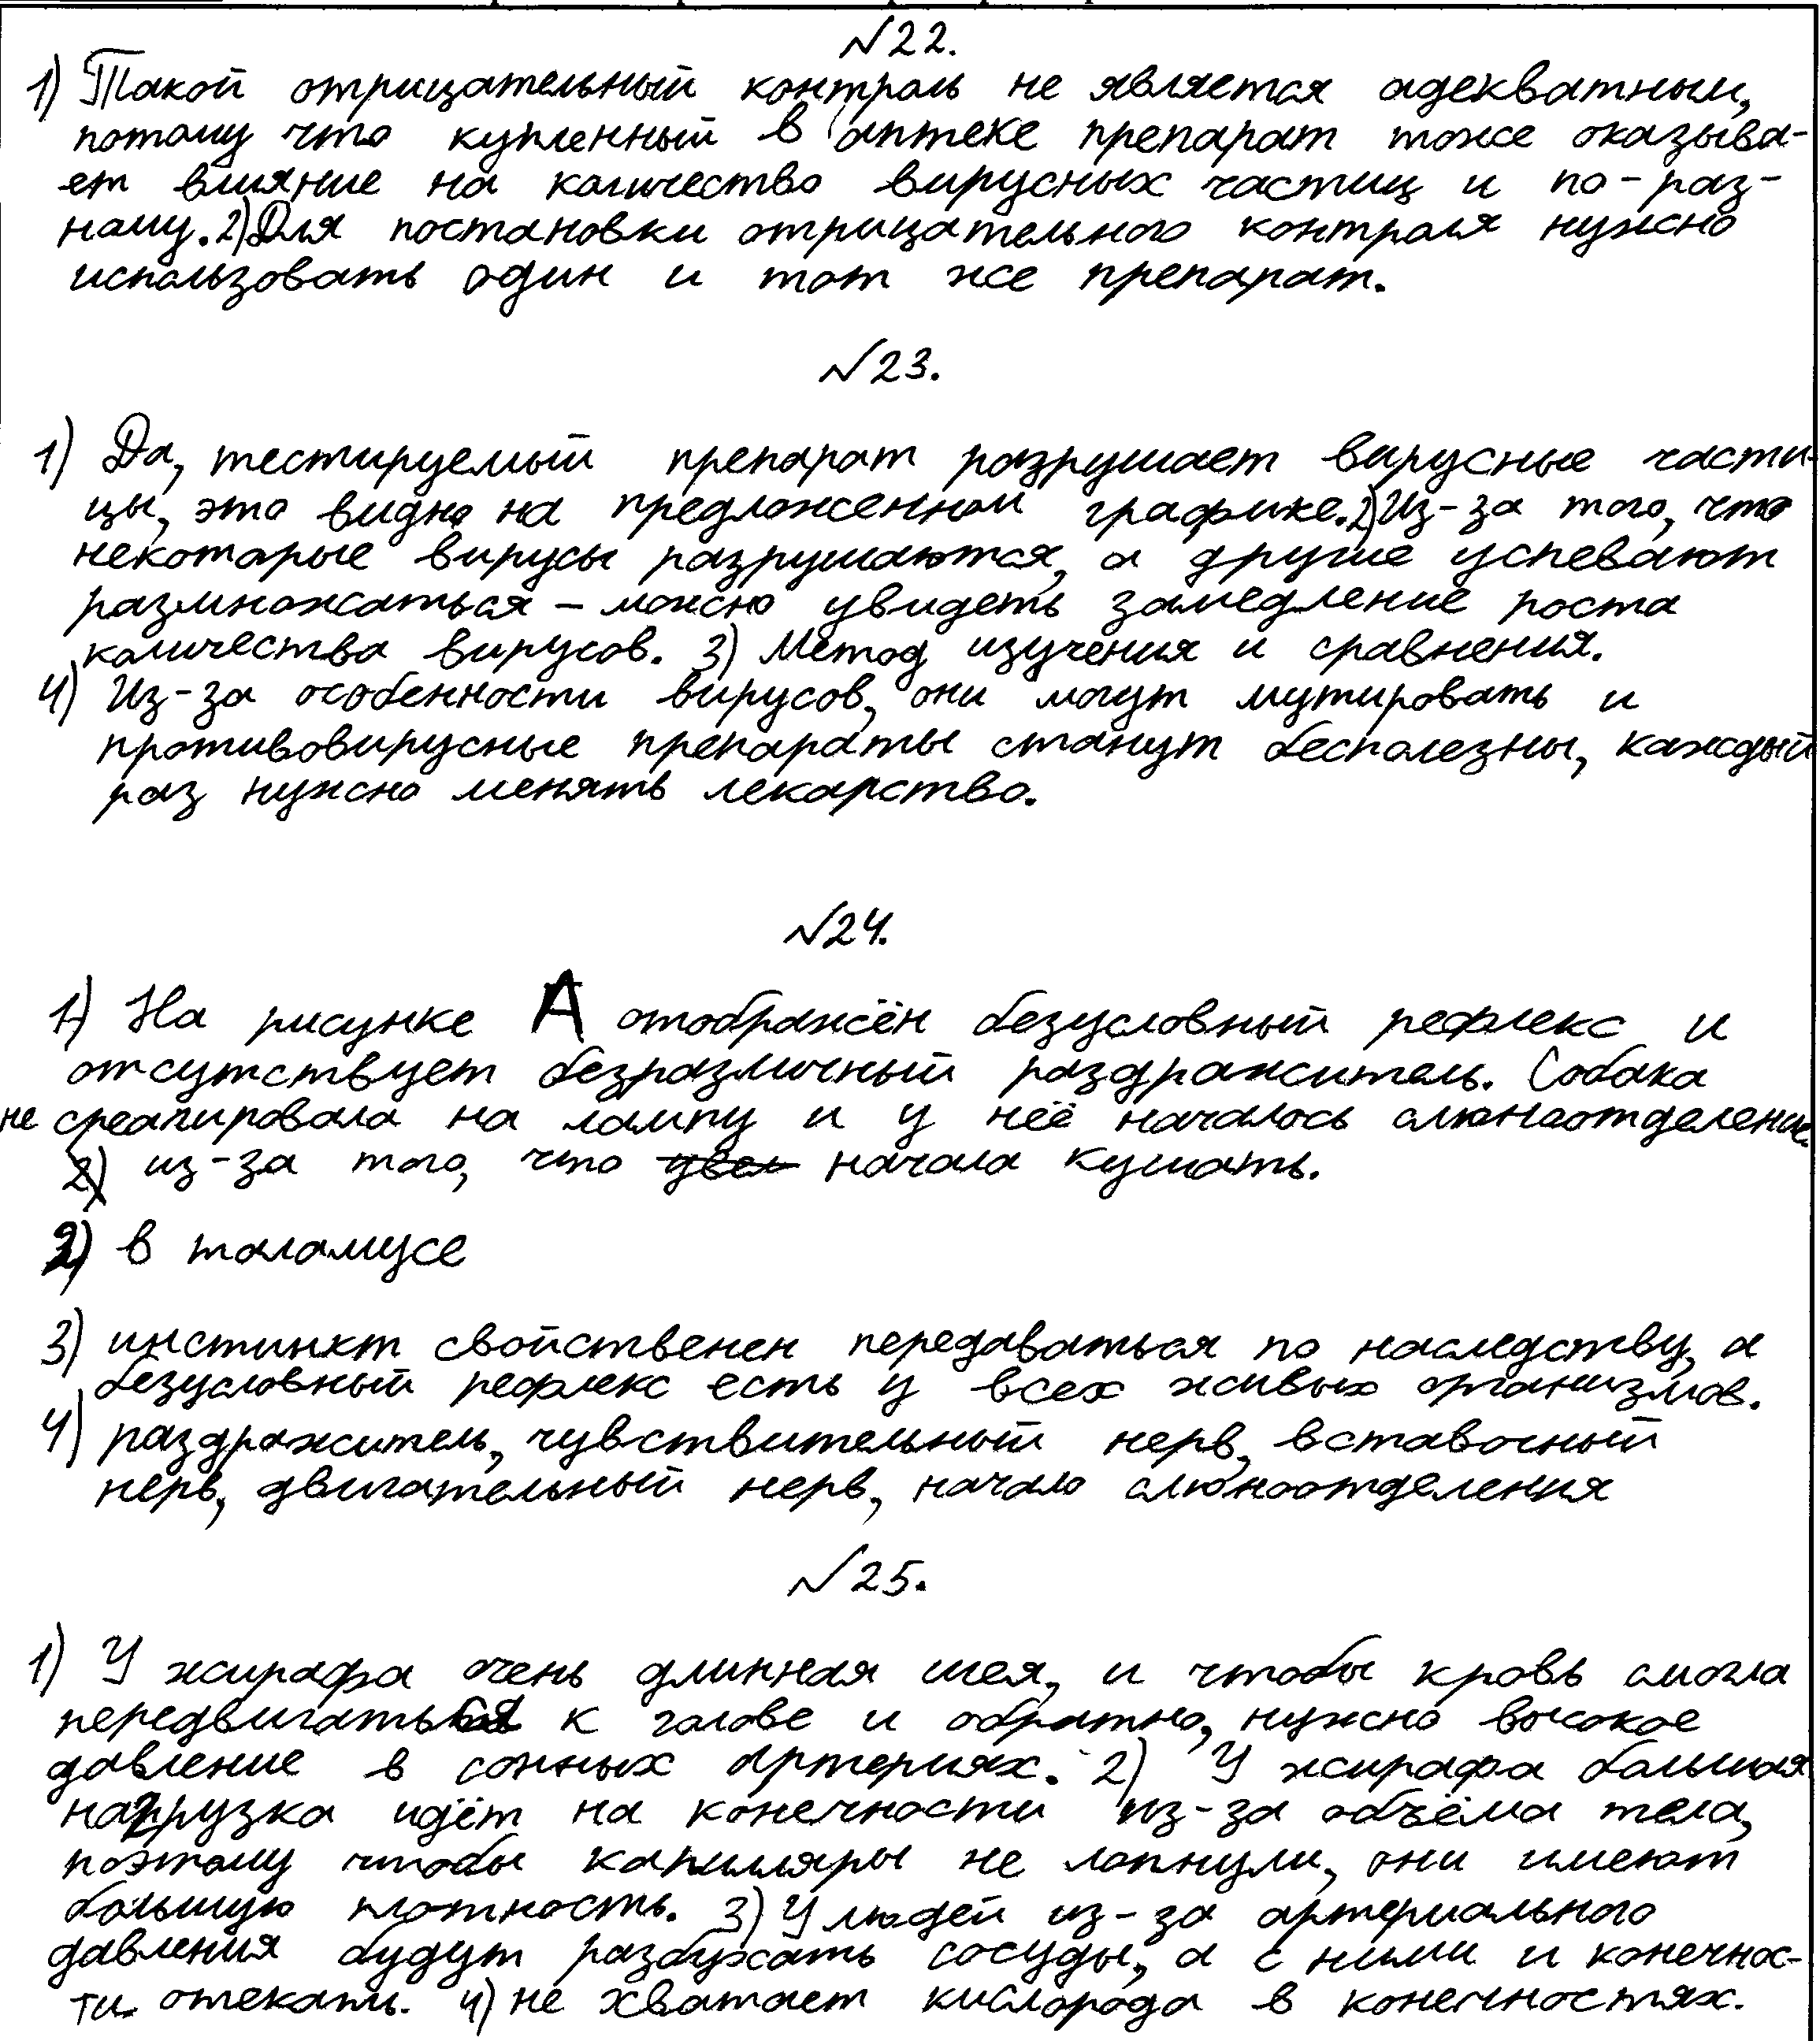 №22.
1) Такой отрицательный контроль не является адекватным,
потому что купленный в аптеке препарат тоже оказыва-
ет влияние на количество вирусных частиц и по-раз-
ному. 2) Для постановки отрицательного контроля нужно
использовать один и тот же препарат.
№23.
1) Да, тестируемый препарат разрушает вирусные части-
цы, это видно на предложенном графике. 2) Из-за того, что
некоторые вирусы разрушаются, а другие успевают
размножаться – можно увидеть замедление роста
количества вирусов. 3) Метод изучения и сравнения.
4) Из-за особенности вирусов, они могут мутировать и
противовирусные препараты станут бесполезны, каждый
раз нужно менять лекарство.
№24.
1) На рисунке А отображён безусловный рефлекс и
отсутствует безразличный раздражитель. Собака
не среагировала на лампу и у неё началось слюноотделение
2) из-за того, что увел начала кушать.
2) в таламусе
3) инстинкт свойственен передаваться по наследству, а
безусловный рефлекс есть у всех живых организмов.
4) раздражитель, чувствительный нерв, вставочный
нерв, двигательный нерв, начало слюноотделения
№25.
1) У жирафа очень длинная шея, и чтобы кровь смогла
передвигаться к голове и обратно, нужно высокое
давление в сонных артериях. 2) У жирафа большая
нагрузка идёт на конечности из-за объёма тела,
поэтому чтобы капилляры не лопнули, они имеют
большую плотность. 3) У людей из-за артериального
давления будут разбухать сосуды, а с ними и конечнос-
ти отекать. 4) не хватает кислорода в конечностях.